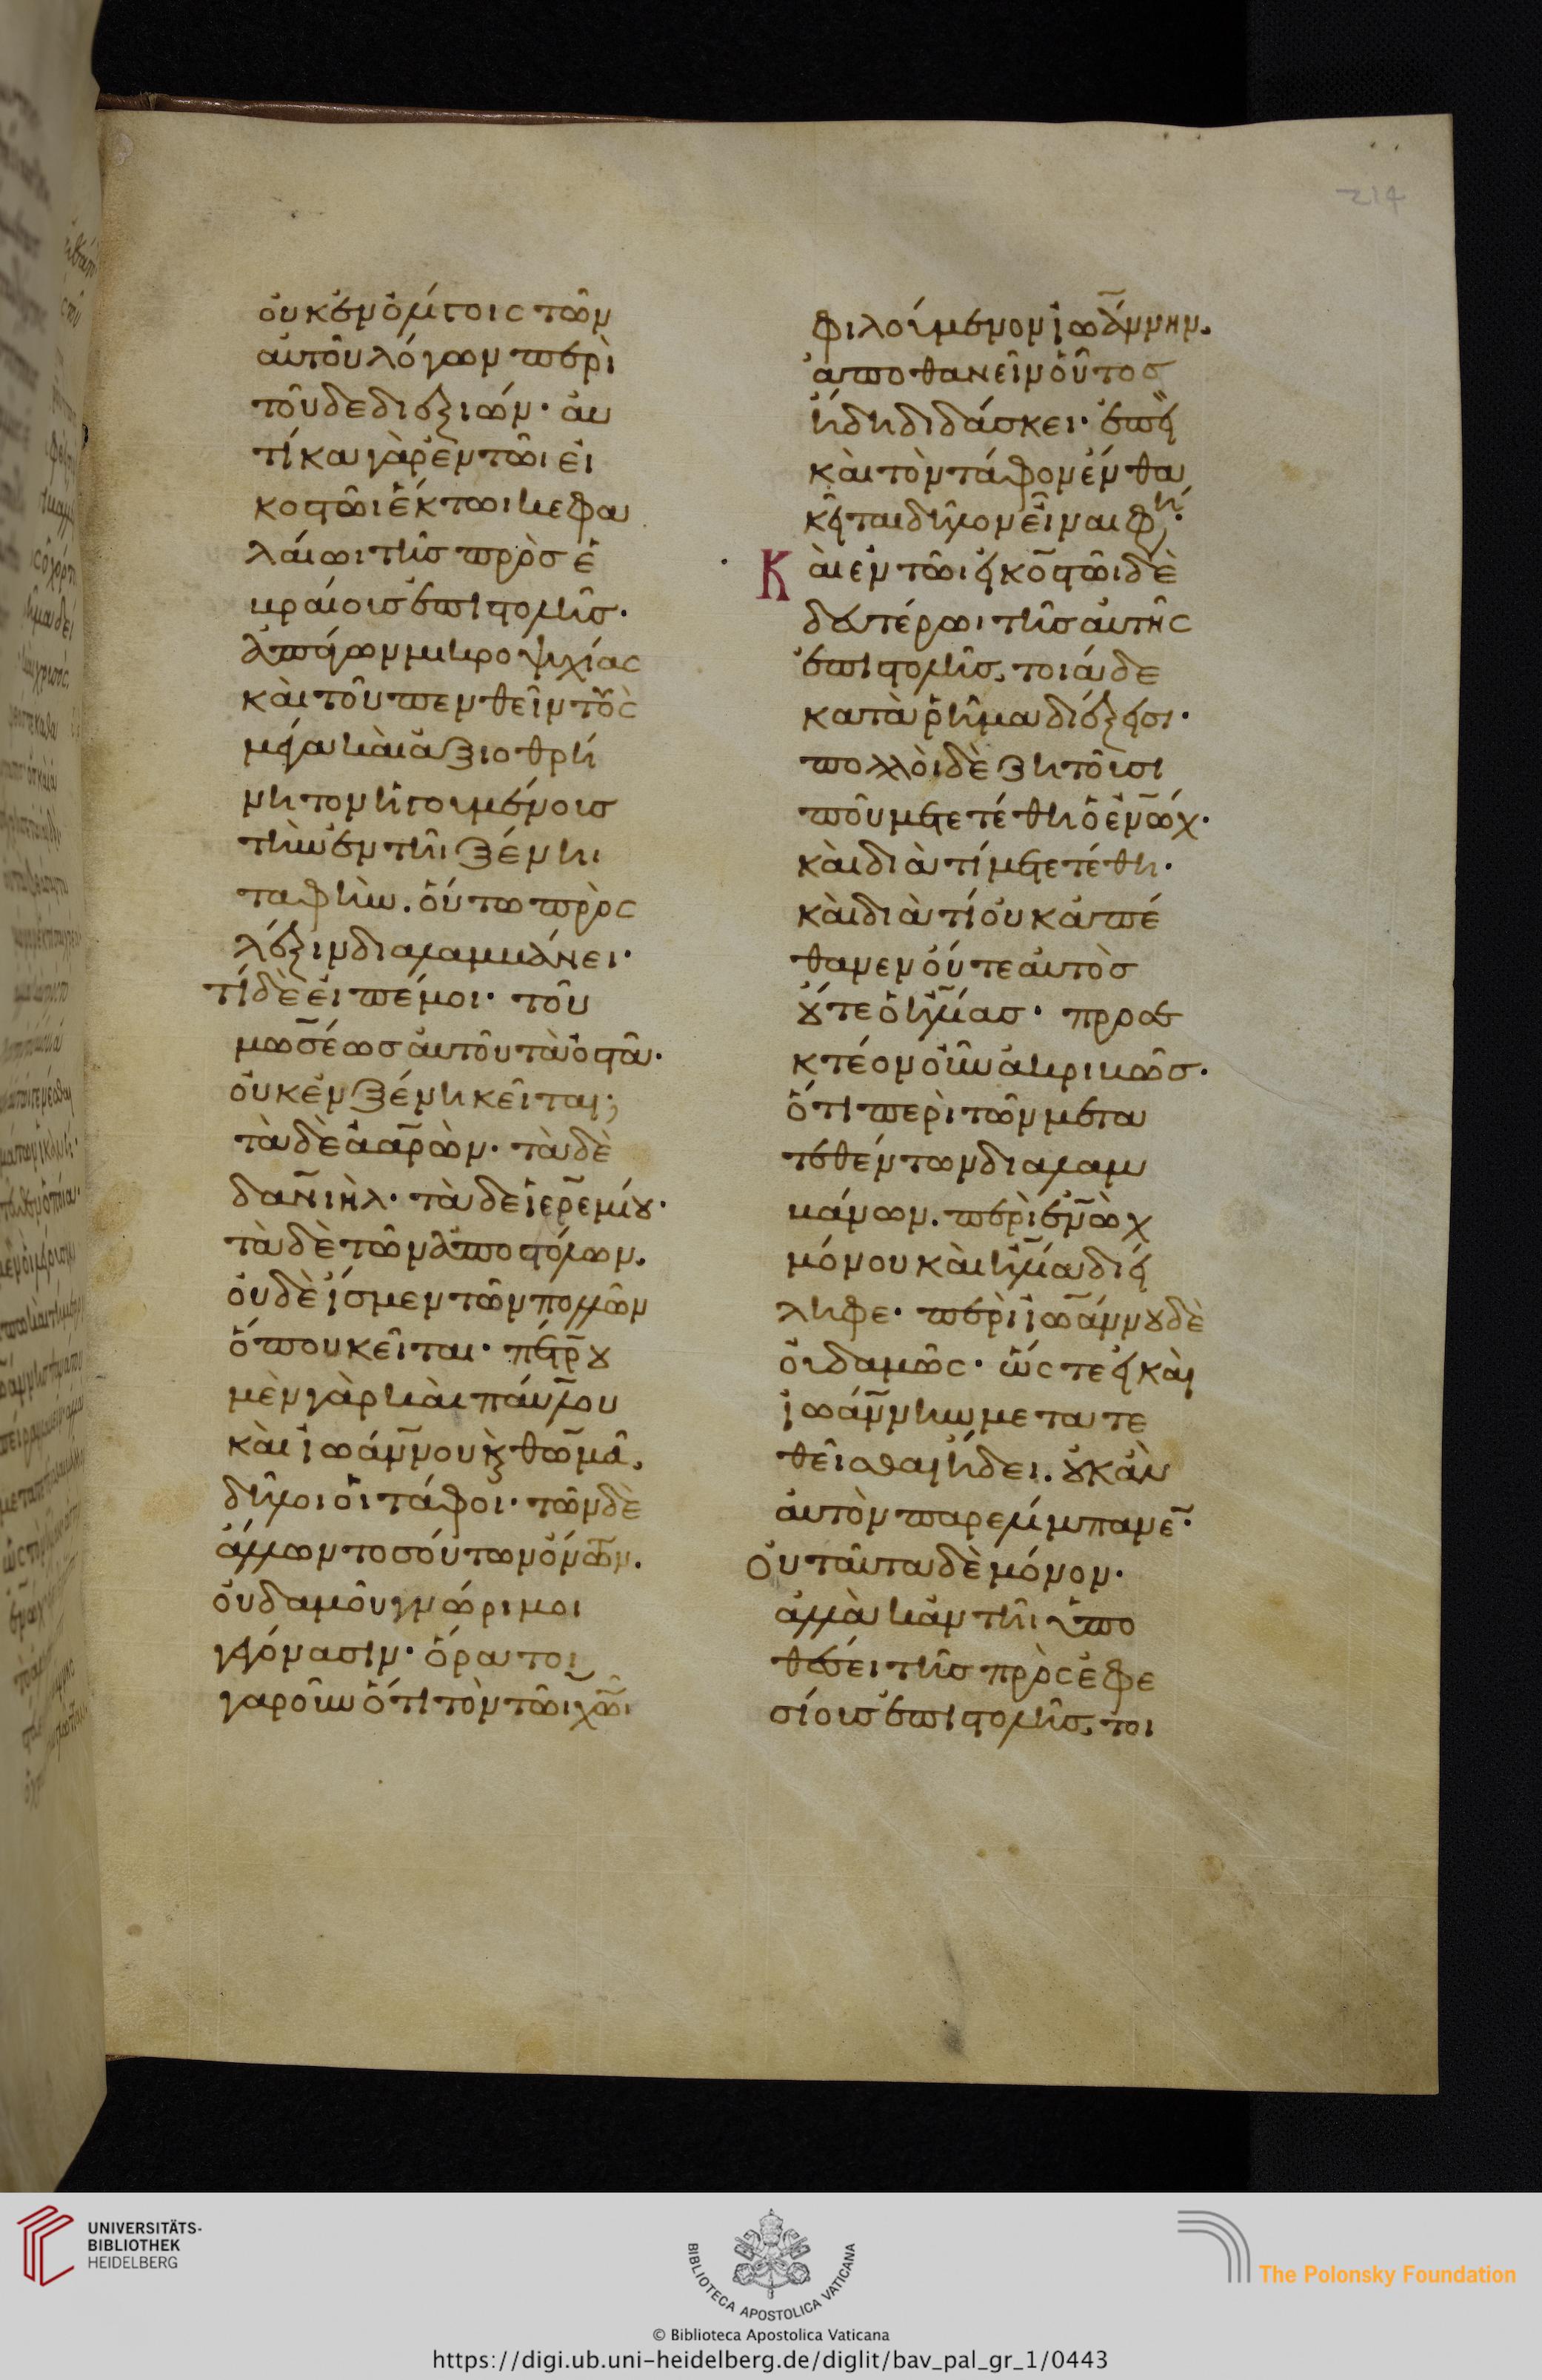 214
οὐκ ἐν ὀλίγοις τῶν
αὐτοῦ λόγων περὶ
τοῦδε διεξιών· αὐ
τίκα γὰρ ἐν τῶι εἰ
κοστῶι ἕκτωι κεφα
λαίωι τῆς πρὸς ἑ
βραίοις ἐπιστολῆς.
ἀπάγων μικροψυχίας
καὶ τοῦ πενθεῖν τοὺς
μέγα καὶ ἀξιοθρή
νητον ἡγουμένοις
τὴν ἐν τῆι ξένηι
ταφὴν. οὕτω πρὸς
λέξιν διαλαμβάνει·
τί δὲ εἰπέ μοι· τοῦ
μωσέως αὐτοῦ τὰ ὀστᾶ·
οὐκ ἐν ξένηι κεῖται;
τὰ δὲ ἀαρὼν· τὰ δὲ
δανιὴλ· τὰ δὲ ἱερεμίου·
τὰ δὲ τῶν ἀποστόλων.
οὐδὲ ἴσμεν τῶν πολλῶν
ὅπου κεῖται· πέτρου
μὲν γὰρ καὶ παύλου
καὶ ἰωάννου κ θωμᾶ.
δῆλοι οἱ τάφοι· τῶν δὲ
ἄλλων τοσούτων ὄντων.
οὐδαμοῦ γνώριμοι
γεγόνασιν· ὅρα τοι
γαροῦν ὅτι τὸν τῶι χῶι
φιλούμενον ἰωάννην.
ἀποθανεῖν οὗτος
ἤδη διδάσκει· ἐπεὶ
καὶ τὸν τάφον ἔνθα
κεῖται δῆλον εἶναι φη·
Καὶ ἐν τῶι εἰκοστῶι δὲ
δευτέρωι τῆς αὐτῆς
ἐπιστολῆς. τοιάδε
κατὰ ῥῆμα διέξεισι·
πολλοὶ δὲ ζητοῦσι
ποῦ μετετέθη ὁ ἐνώχ·
καὶ διὰ τί μετετέθη·
καὶ διὰ τί οὐκ ἀπέ
θανεν οὔτε αὐτὸς
οὔτε ὁ ἡλίας· προσε
κτέον οὖν ἀκριβῶς.
ὅτι περὶ τῶν μετα
τεθέντων διαλαμ
βάνων. περὶ ἐνὼχ
μόνου καὶ ἡλία διεί
ληφε· περὶ ἰωάννου δὲ
οὐδαμῶς· ὥς τε εἰ καὶ
ἰωάννην μετατε
θεῖσθαι ἤδει. οὐκ ἂν
αὐτὸν παρελίμπανε·
Οὐ ταῦτα δὲ μόνον·
ἀλλὰ κἀν τῆι ὑπο
θέσει τῆς πρὸς ἐφε
σίοις ἐπιστολῆς. τοι
UNIVERSITÄTS-
BIBLIOTHEK
HEIDELBERG
BIBLIOTECA APOSTOLICA VATICANA
The Polonsky Foundation
© Biblioteca Apostolica Vaticana
https://digi.ub.uni-heidelberg.de/diglit/bav_pal_gr_1/0443